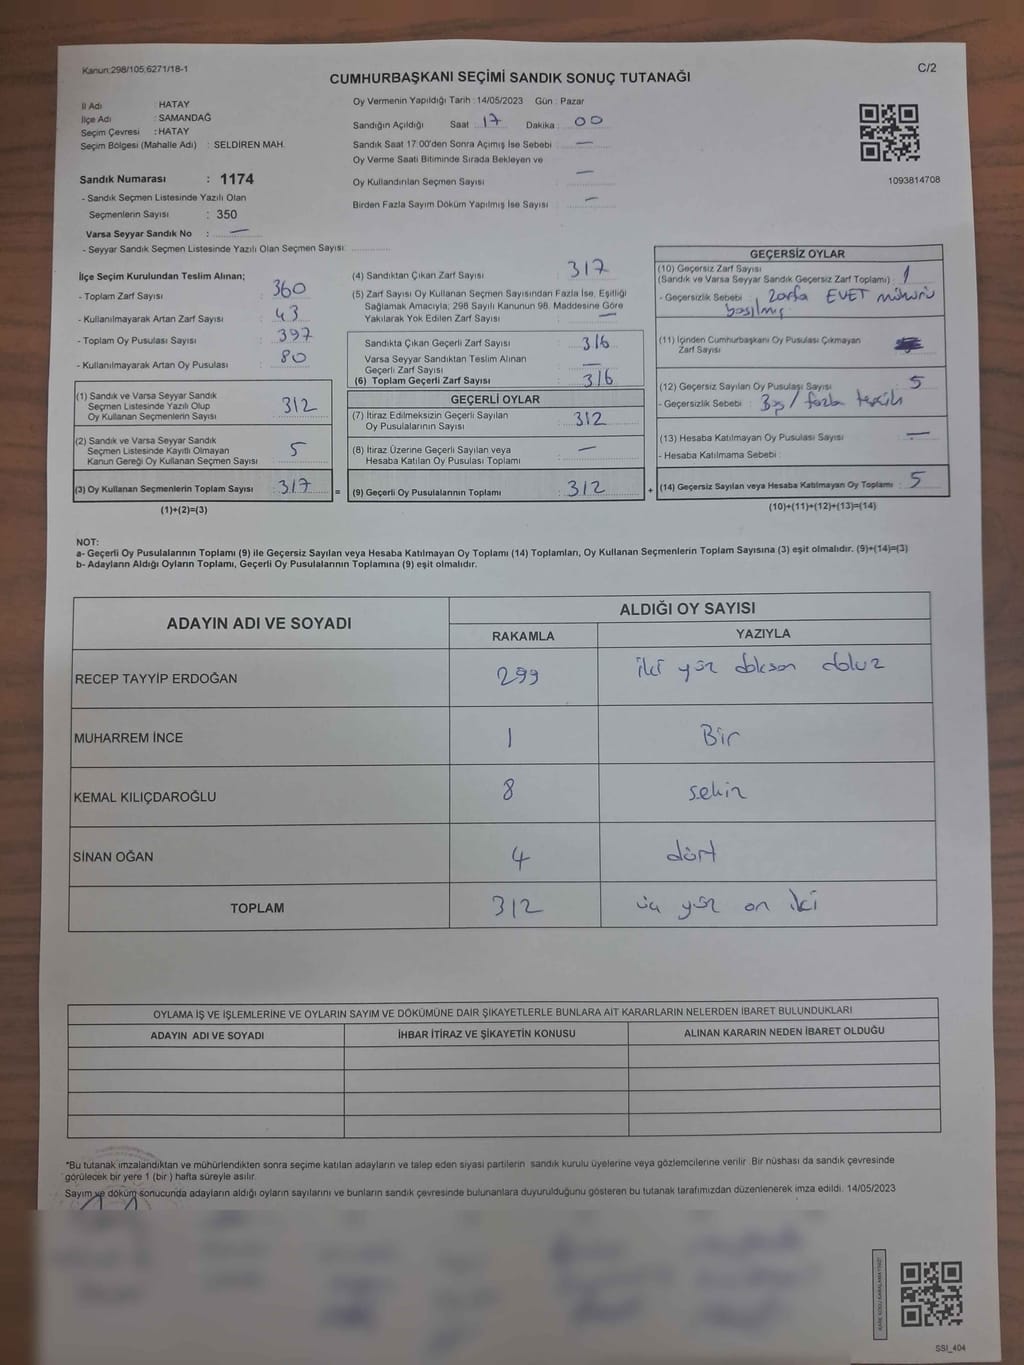 Kanun:298/105;6271/18-1
C/2
CUMHURBAŞKANI SEÇİMİ SANDIK SONUÇ TUTANAĞI
İl Adı : HATAY
İlçe Adı : SAMANDAĞ
Seçim Çevresi : HATAY
Seçim Bölgesi (Mahalle Adı) : SELDİREN MAH.
Sandık Numarası : 1174
- Sandık Seçmen Listesinde Yazılı Olan
Seçmenlerin Sayısı : 350
Varsa Seyyar Sandık No : —
- Seyyar Sandık Seçmen Listesinde Yazılı Olan Seçmen Sayısı:
Oy Vermenin Yapıldığı Tarih : 14/05/2023 Gün : Pazar
Sandığın Açıldığı Saat 17 Dakika 00
Sandık Saat 17:00'den Sonra Açımış İse Sebebi : —
Oy Verme Saati Bitiminde Sırada Bekleyen ve
Oy Kullandırılan Seçmen Sayısı : —
Birden Fazla Sayım Döküm Yapılmış İse Sayısı : —
1093814708
İlçe Seçim Kurulundan Teslim Alınan;
- Toplam Zarf Sayısı : 360
- Kullanılmayarak Artan Zarf Sayısı : 43
- Toplam Oy Pusulası Sayısı : 397
- Kullanılmayarak Artan Oy Pusulası : 80
(1) Sandık ve Varsa Seyyar Sandık
Seçmen Listesinde Yazılı Olup
Oy Kullanan Seçmenlerin Sayısı : 312
(2) Sandık ve Varsa Seyyar Sandık
Seçmen Listesinde Kayıtlı Olmayan
Kanun Gereği Oy Kullanan Seçmen Sayısı : 5
(3) Oy Kullanan Seçmenlerin Toplam Sayısı : 317
(1)+(2)=(3)
(4) Sandıktan Çıkan Zarf Sayısı : 317
(5) Zarf Sayısı Oy Kullanan Seçmen Sayısından Fazla İse, Eşitliği
Sağlamak Amacıyla; 298 Sayılı Kanunun 98. Maddesine Göre
Yakılarak Yok Edilen Zarf Sayısı : —
Sandıkta Çıkan Geçerli Zarf Sayısı : 316
Varsa Seyyar Sandıktan Teslim Alınan
Geçerli Zarf Sayısı : —
(6) Toplam Geçerli Zarf Sayısı : 316
GEÇERLİ OYLAR
(7) İtiraz Edilmeksizin Geçerli Sayılan
Oy Pusulalarının Sayısı : 312
(8) İtiraz Üzerine Geçerli Sayılan veya
Hesaba Katılan Oy Pusulası Toplamı : —
= (9) Geçerli Oy Pusulalarının Toplamı : 312 +
GEÇERSİZ OYLAR
(10) Geçersiz Zarf Sayısı
(Sandık ve Varsa Seyyar Sandık Geçersiz Zarf Toplamı) : 1
- Geçersizlik Sebebi : zarfa EVET mührü
basılmış
(11) İçinden Cumhurbaşkanı Oy Pusulası Çıkmayan
Zarf Sayısı
(12) Geçersiz Sayılan Oy Pusulası Sayısı : 5
- Geçersizlik Sebebi : Boş / fazla tercih
(13) Hesaba Katılmayan Oy Pusulası Sayısı : —
- Hesaba Katılmama Sebebi :
(14) Geçersiz Sayılan veya Hesaba Katılmayan Oy Toplamı : 5
(10)+(11)+(12)+(13)=(14)
NOT:
a- Geçerli Oy Pusulalarının Toplamı (9) ile Geçersiz Sayılan veya Hesaba Katılmayan Oy Toplamı (14) Toplamları, Oy Kullanan Seçmenlerin Toplam Sayısına (3) eşit olmalıdır. (9)+(14)=(3)
b- Adayların Aldığı Oyların Toplamı, Geçerli Oy Pusulalarının Toplamına (9) eşit olmalıdır.
ADAYIN ADI VE SOYADI
ALDIĞI OY SAYISI
RAKAMLA YAZIYLA
RECEP TAYYİP ERDOĞAN 299 iki yüz doksan dokuz
MUHARREM İNCE 1 Bir
KEMAL KILIÇDAROĞLU 8 sekiz
SİNAN OĞAN 4 dört
TOPLAM 312 üç yüz on iki
OYLAMA İŞ VE İŞLEMLERİNE VE OYLARIN SAYIM VE DÖKÜMÜNE DAİR ŞİKAYETLERLE BUNLARA AİT KARARLARIN NELERDEN İBARET BULUNDUKLARI
ADAYIN ADI VE SOYADI İHBAR İTİRAZ VE ŞİKAYETİN KONUSU ALINAN KARARIN NEDEN İBARET OLDUĞU
*Bu tutanak imzalandıktan ve mühürlendikten sonra seçime katılan adayların ve talep eden siyasi partilerin sandık kurulu üyelerine veya gözlemcilerine verilir. Bir nüshası da sandık çevresinde
görülecek bir yere 1 (bir) hafta süreyle asılır.
Sayım ve döküm sonucunda adayların aldığı oyların sayılarını ve bunların sandık çevresinde bulunanlara duyurulduğunu gösteren bu tutanak tarafımızdan düzenlenerek imza edildi. 14/05/2023
SSI_404